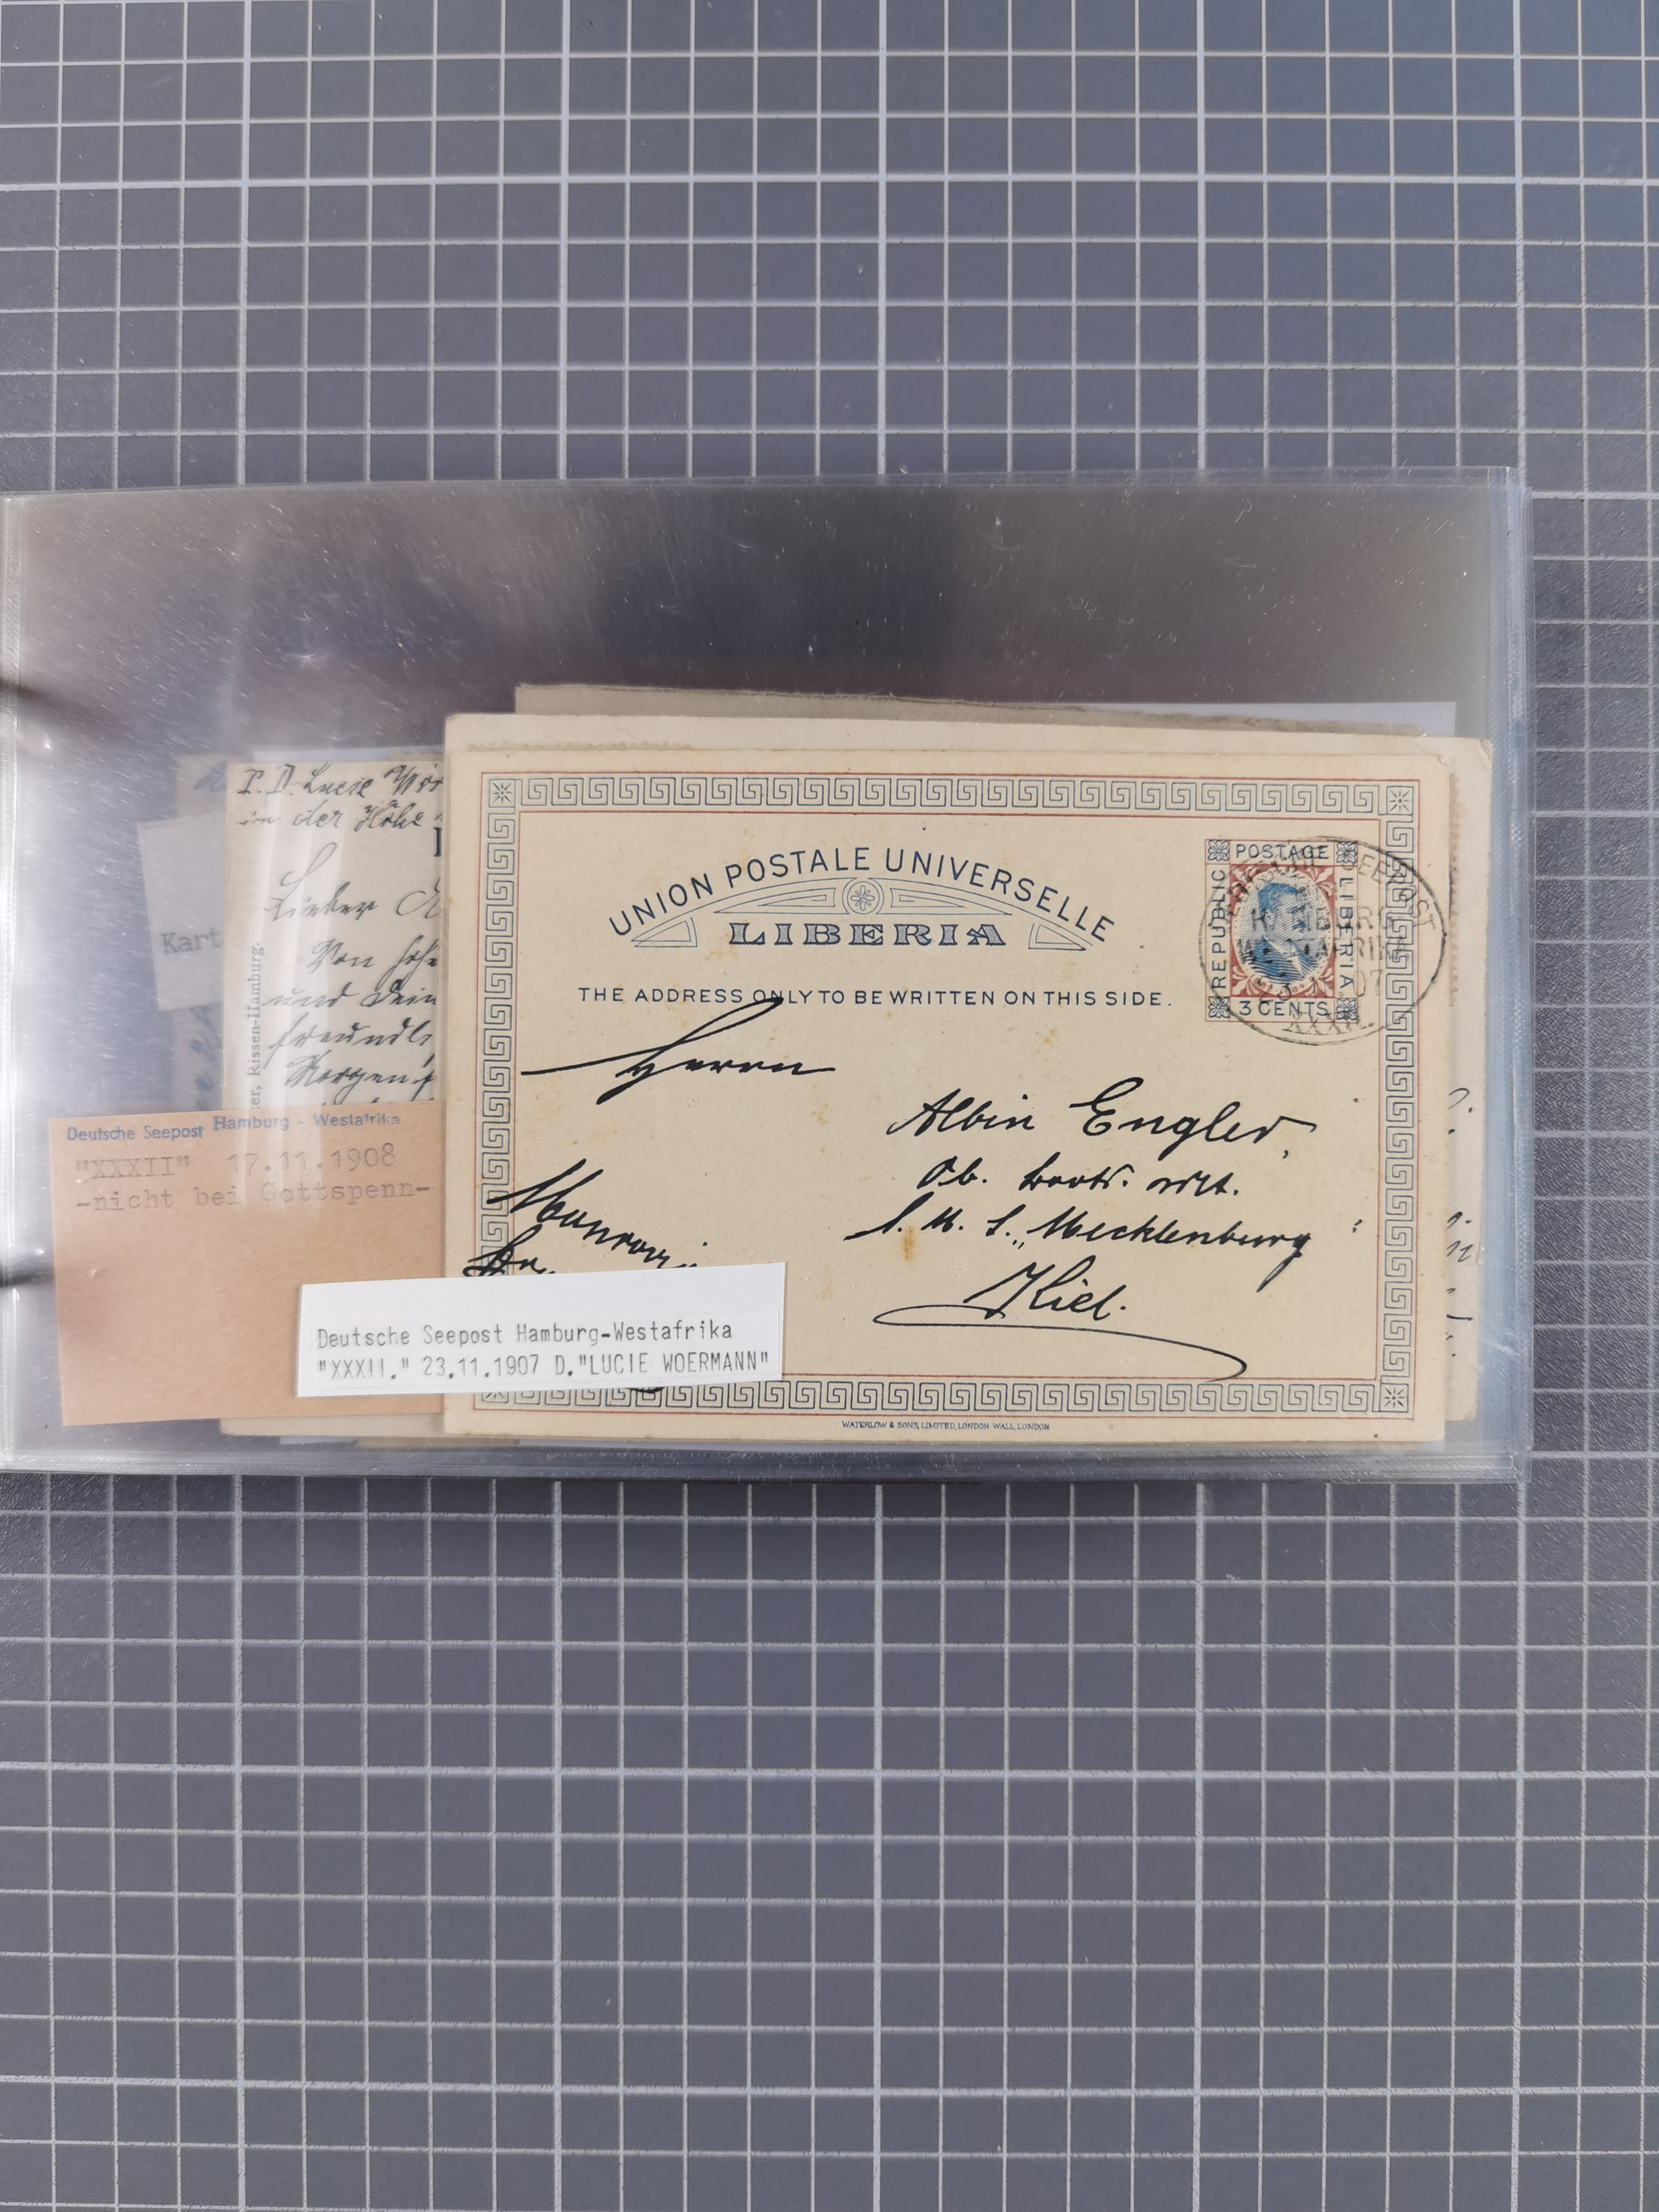 P. D. Lucie Wör
in der Höhe
Lieber
Von
und Dein
freundl
Morgen
Kart
er, Rissen-Hamburg.
Deutsche Seepost Hamburg - Westafrika
"XXXII" 17.11.1908
-nicht bei Gottspenn-
UNION POSTALE UNIVERSELLE
LIBERIA
THE ADDRESS ONLY TO BE WRITTEN ON THIS SIDE.
POSTAGE
REPUBLIC
LIBERIA
3 CENTS
SEEPOST
07
XXXII.
Herrn
Albin Engler,
Ob.
S. M. S. „Mecklenburg"
Kiel.
Monrovia
Deutsche Seepost Hamburg-Westafrika
"XXXII." 23.11.1907 D."LUCIE WOERMANN"
WATERLOW & SONS, LIMITED, LONDON WALL, LONDON